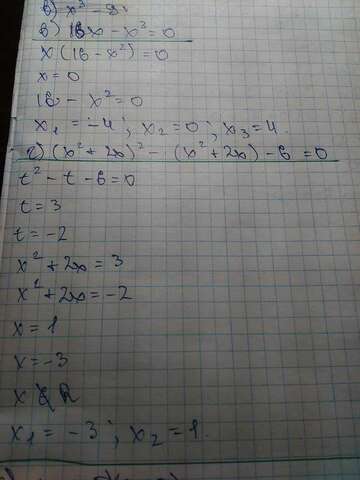 в) 16x - x³ = 0
x(16 - x²) = 0
x = 0
16 - x² = 0
x₁ = -4; x₂ = 0; x₃ = 4.
г) (x² + 2x)² - (x² + 2x) - 6 = 0
t² - t - 6 = 0
t = 3
t = -2
x² + 2x = 3
x² + 2x = -2
x = 1
x = -3
x ∉ R
x₁ = -3; x₂ = 1.